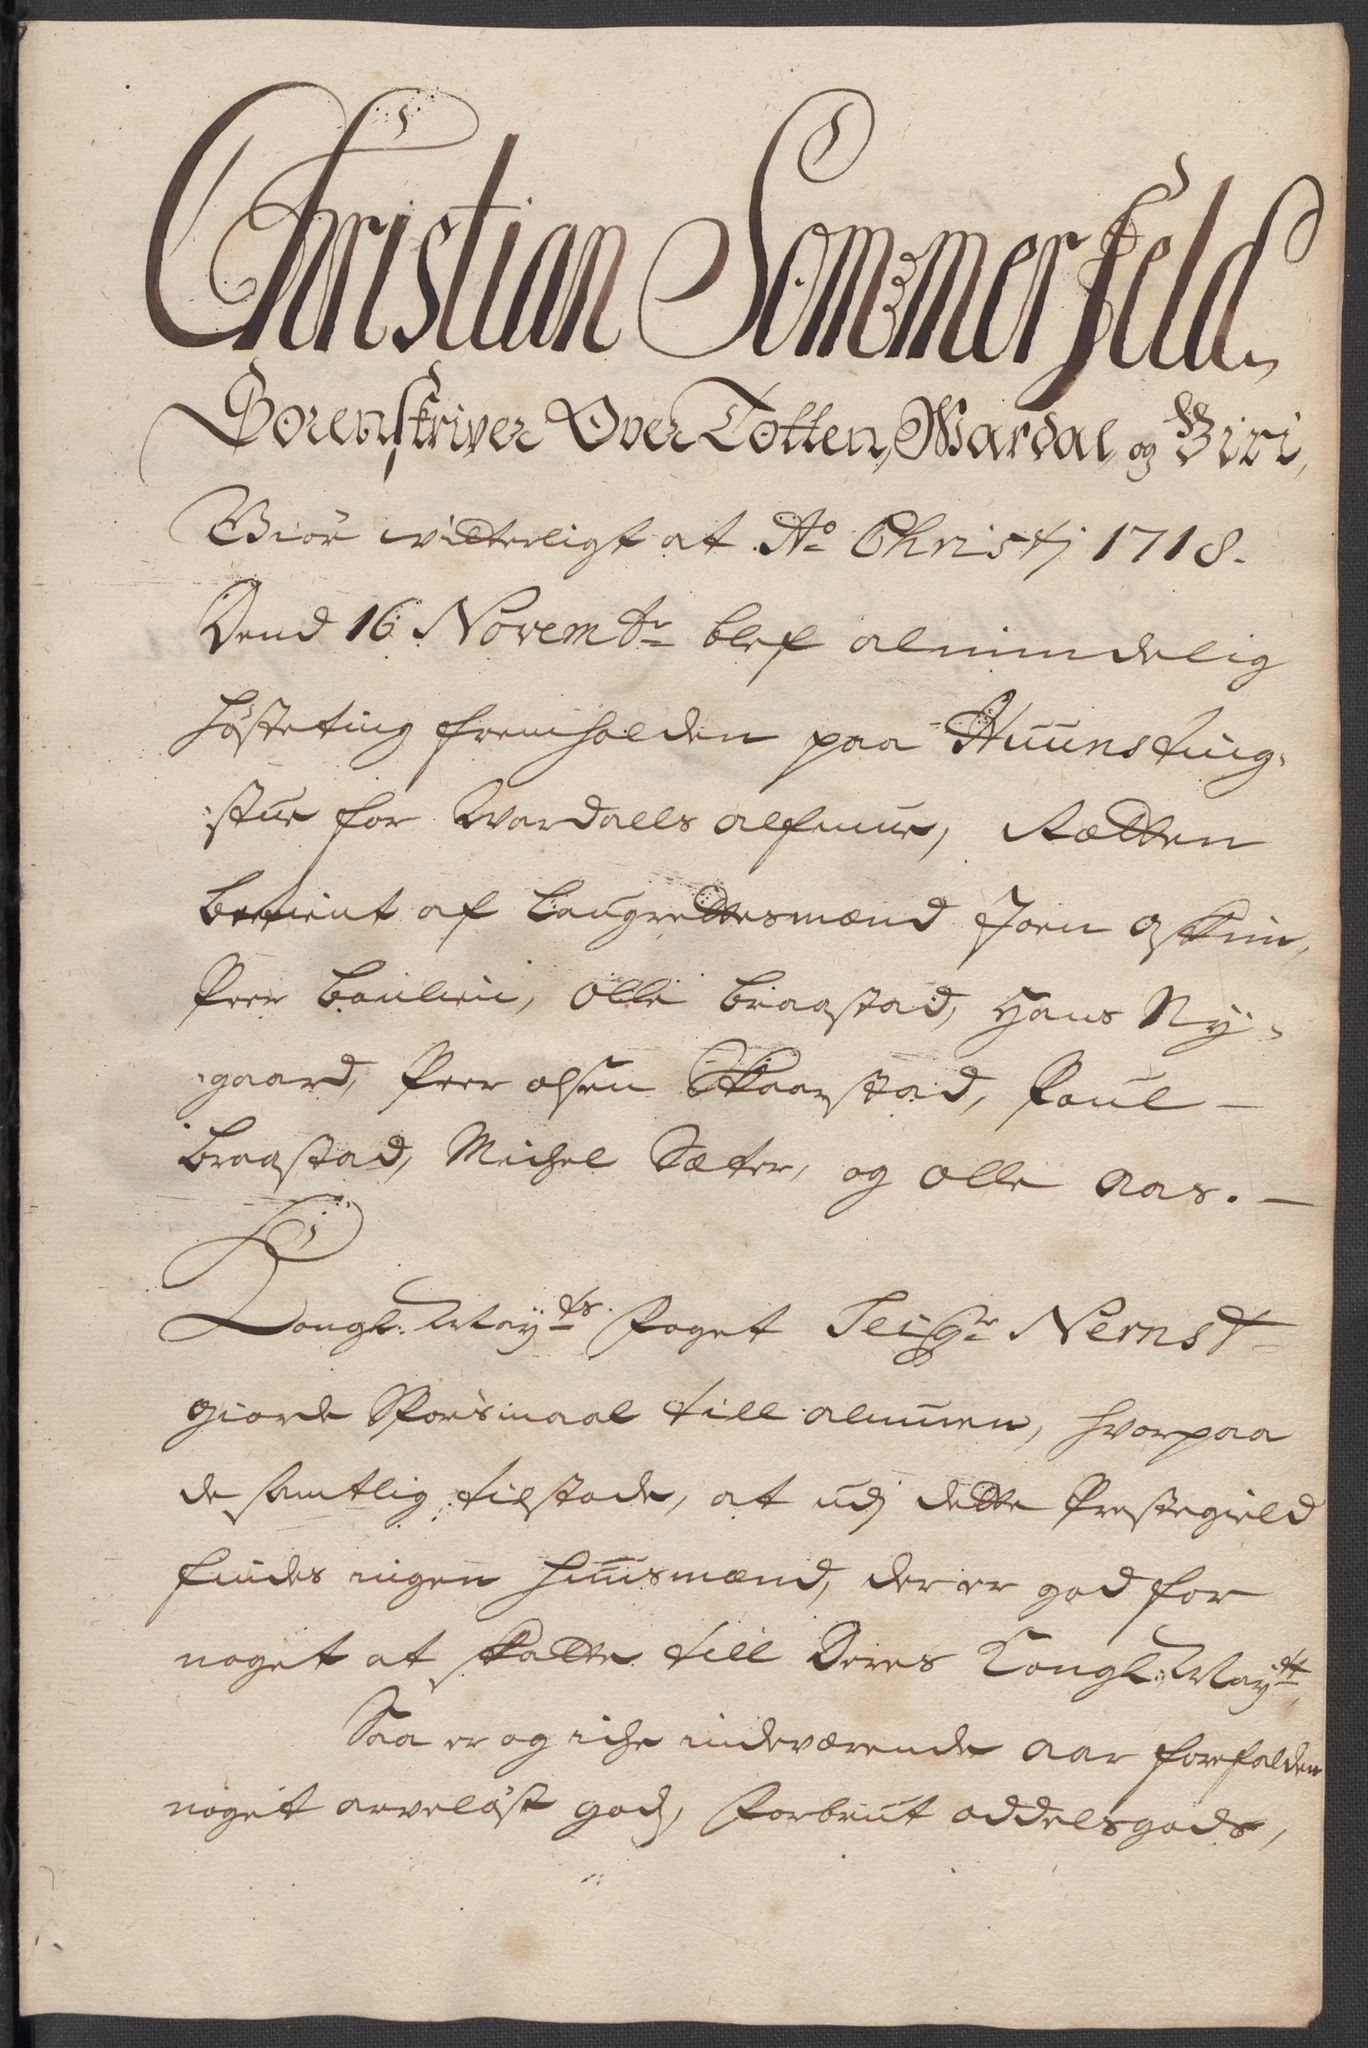 Christian Sommerfeld,
Sorenskriver Over Totten, Wardal, og Biri,
Giör witterligt at Ao Christj 1718.
Dend 16 Novembr blef almindelig
hösteting fremholden paa Huuns ting-
stue for Wardalls almue, Rætten
betient af Laugrettesmænd Joen
Peer Boulien, Olle Braastad, Hans Ny-
gaard, Peer olsen Skaarstad, Poul
Braastad, Michel Sæter, og Olle Aas.
Kongl: Mayts Foget Seigr Nernst
giorde Spörsmaal till almuen, hvorpaa
de samtlig tilstode, at udj dette Prestegield
findes ingen huusmænd, der er god for
noget at skatte till Deres Kongl: Maytt,
Saa er og iche indeværende aar forefalden
noget arvelöst gods, Forbrut oddelsgods,